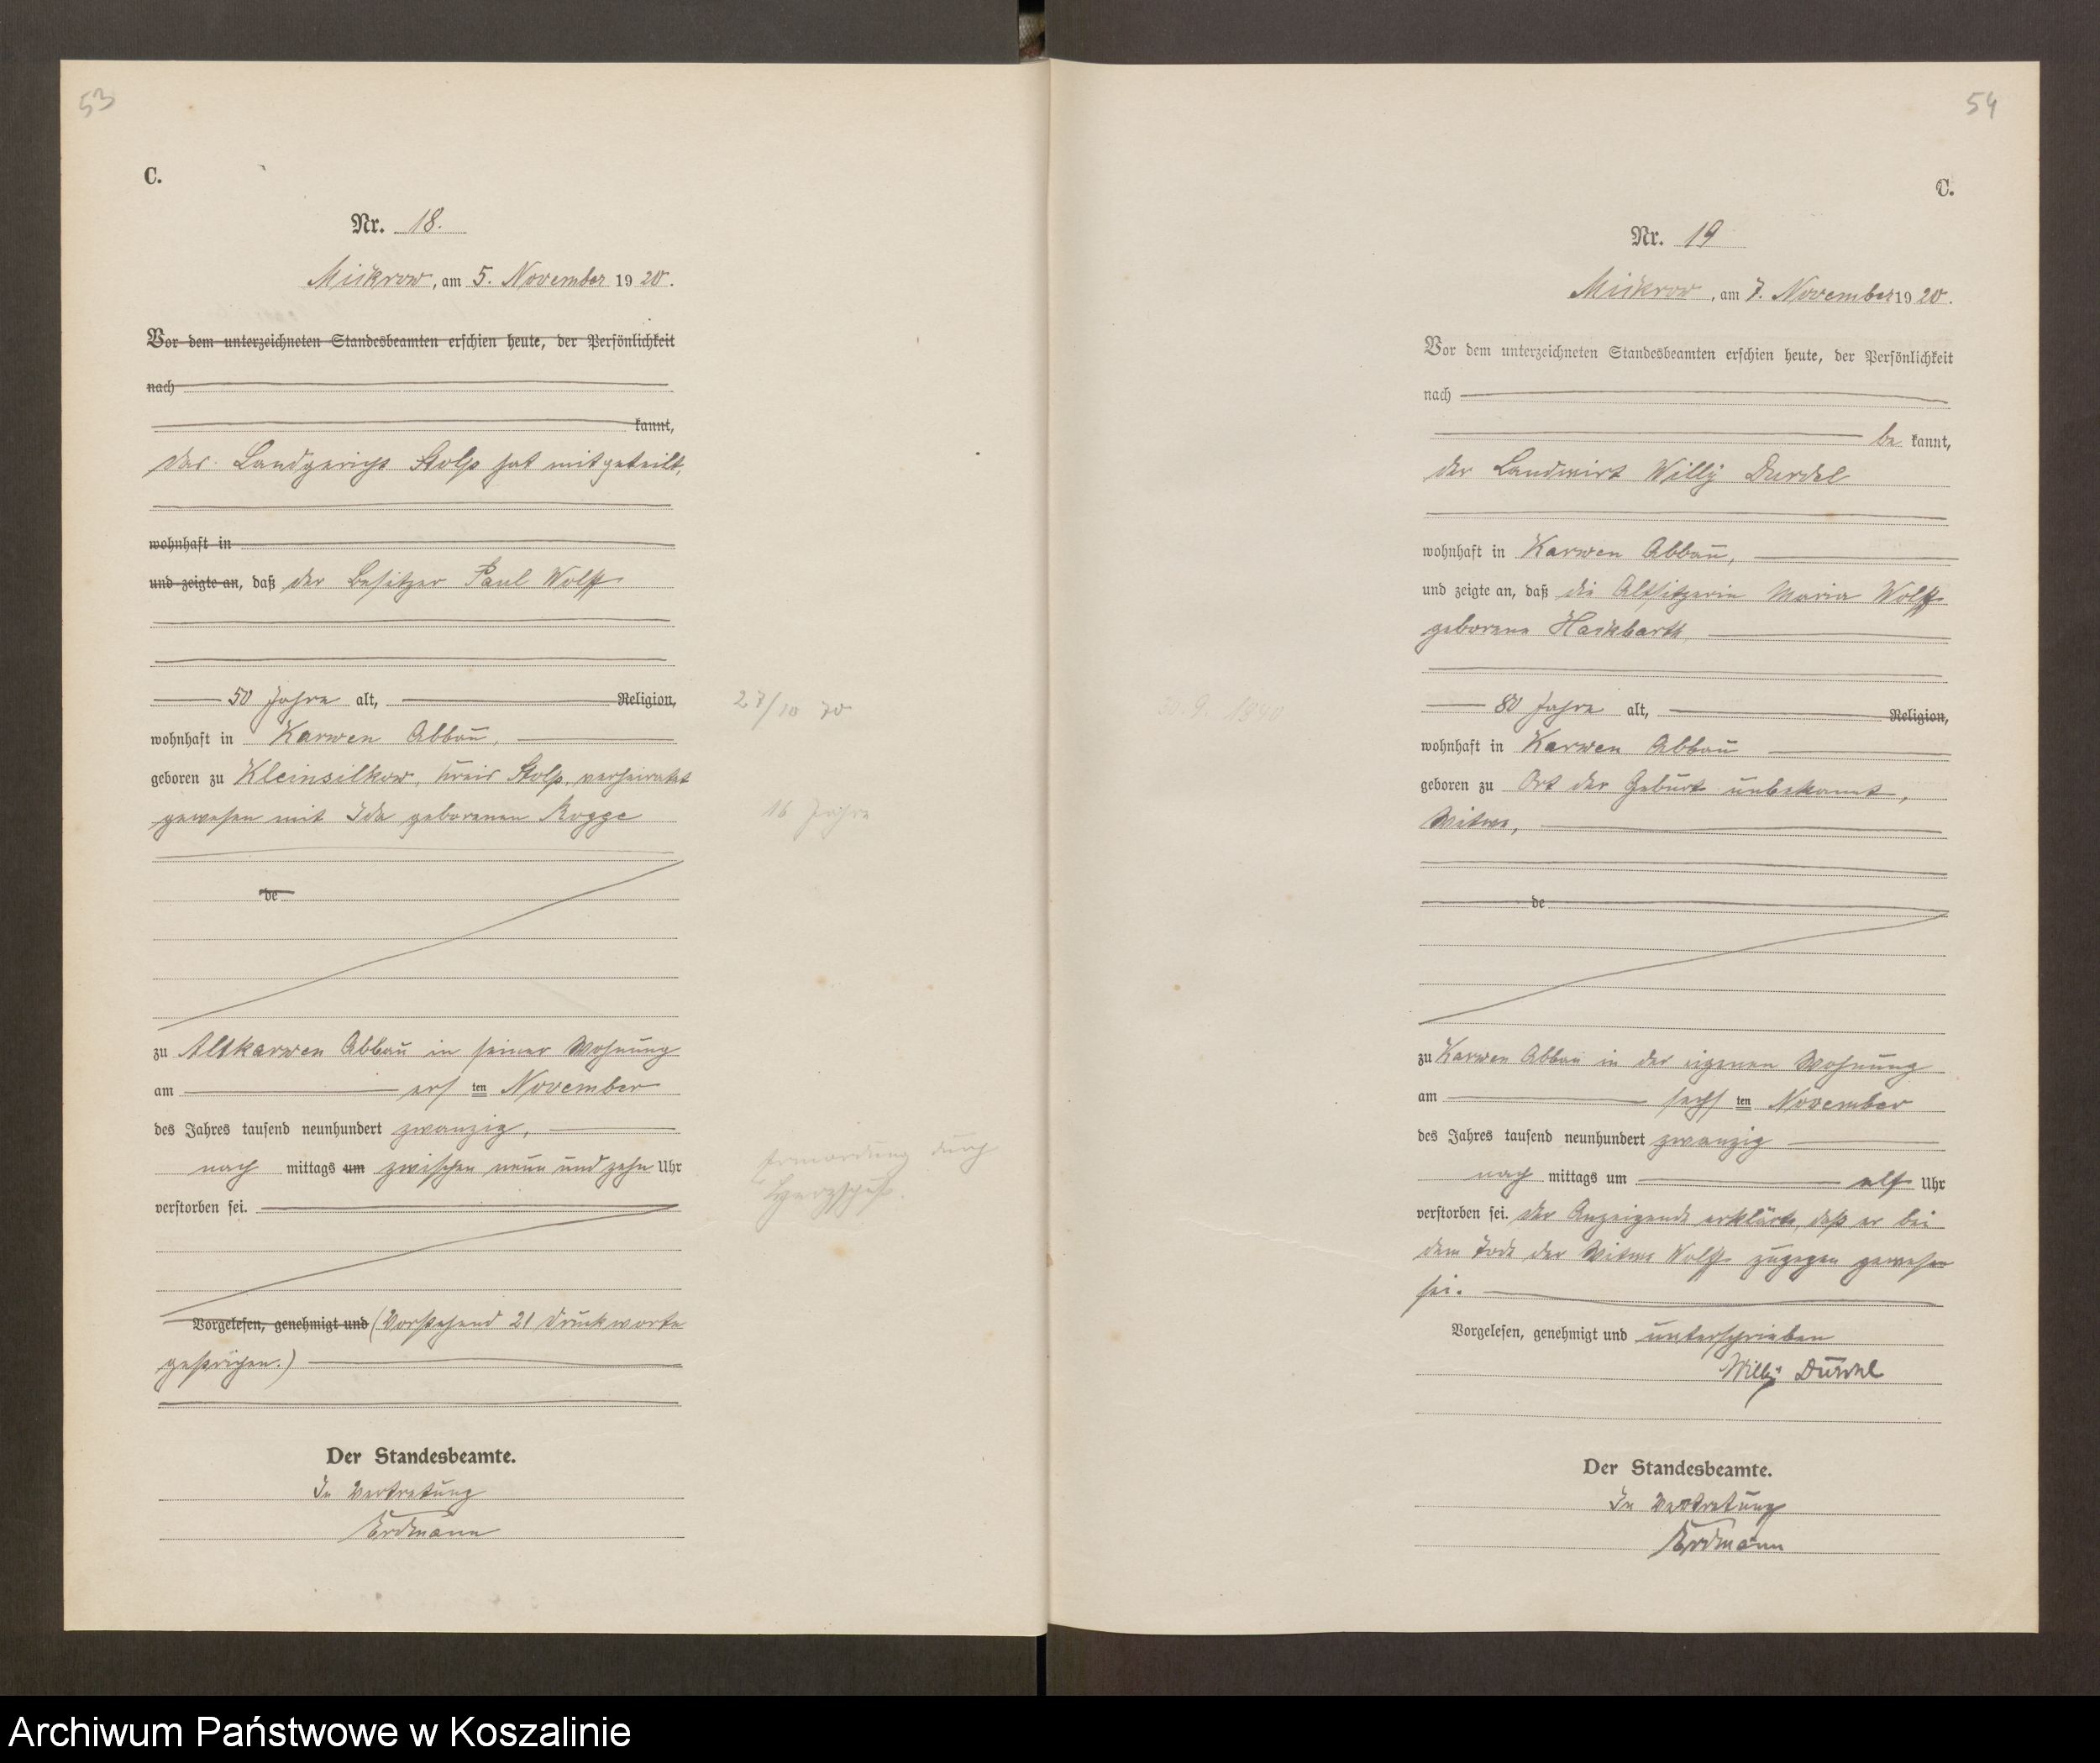 53
C.
Nr. 18.
Mickrow, am 5. November 1920.
Vor dem unterzeichneten Standesbeamten erschien heute, der Persönlichkeit
nach
kannt,
das Landgericht Stolp hat mitgeteilt,
wohnhaft in
und zeigte an, daß der Besitzer Paul Wolff
50 Jahre alt, Religion,
wohnhaft in Karwen Abbau,
geboren zu Kleinsilkow, Kreis Stolp, verheiratet
gewesen mit Ida geborenen Rogge
de
zu Altkarwen Abbau in seiner Wohnung
am ersten November
des Jahres tausend neunhundert zwanzig,
nach mittags um zwischen neun und zehn Uhr
verstorben sei.
Vorgelesen, genehmigt und (Vorstehend 21 Druckworte
gestrichen.)
Der Standesbeamte.
In Vertretung
Erdmann
27/10 70
16 Jahre
Ermordung durch
Herzschuß.
54
C.
Nr. 19
Mickrow, am 7. November 1920.
Vor dem unterzeichneten Standesbeamten erschien heute, der Persönlichkeit
nach
be kannt,
der Landwirt Willy Durdel
wohnhaft in Karwen Abbau,
und zeigte an, daß die Altsitzerin Maria Wolff
geborene Hackbarth
80 Jahre alt, Religion,
wohnhaft in Karwen Abbau
geboren zu Ort der Geburt unbekannt,
Witwe,
de
zu Karwen Abbau in der eigenen Wohnung
am sechsten November
des Jahres tausend neunhundert zwanzig
nach mittags um elf Uhr
verstorben sei. Der Anzeigende erklärte, daß er bei
dem Tode der Witwe Wolff zugegen gewesen
sei.
Vorgelesen, genehmigt und unterschrieben
Willy Durdel
Der Standesbeamte.
In Vertretung
Erdmann
Archiwum Państwowe w Koszalinie